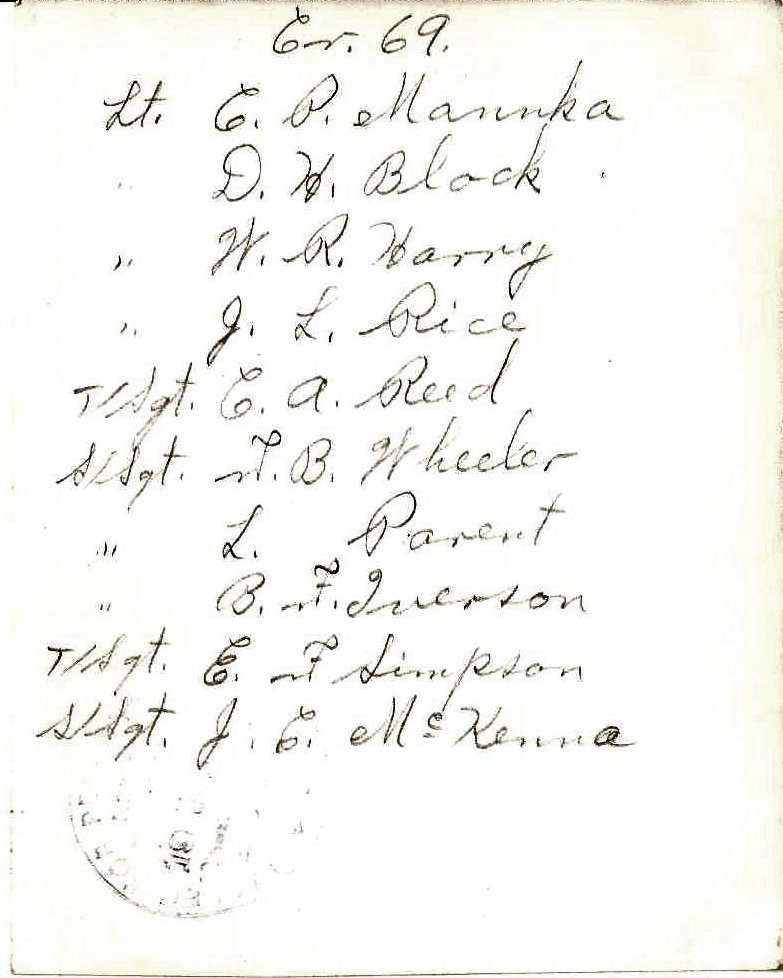 Cr. 69.
Lt. E. P. Mannka
" D. H. Block
" W. R. Harry
" J. L. Rice
T/Sgt. E. A. Reed
S/Sgt. F. B. Wheeler
" L. Parent
" B. F. Iverson
T/Sgt. E. F Simpson
S/Sgt. J. E. McKenna